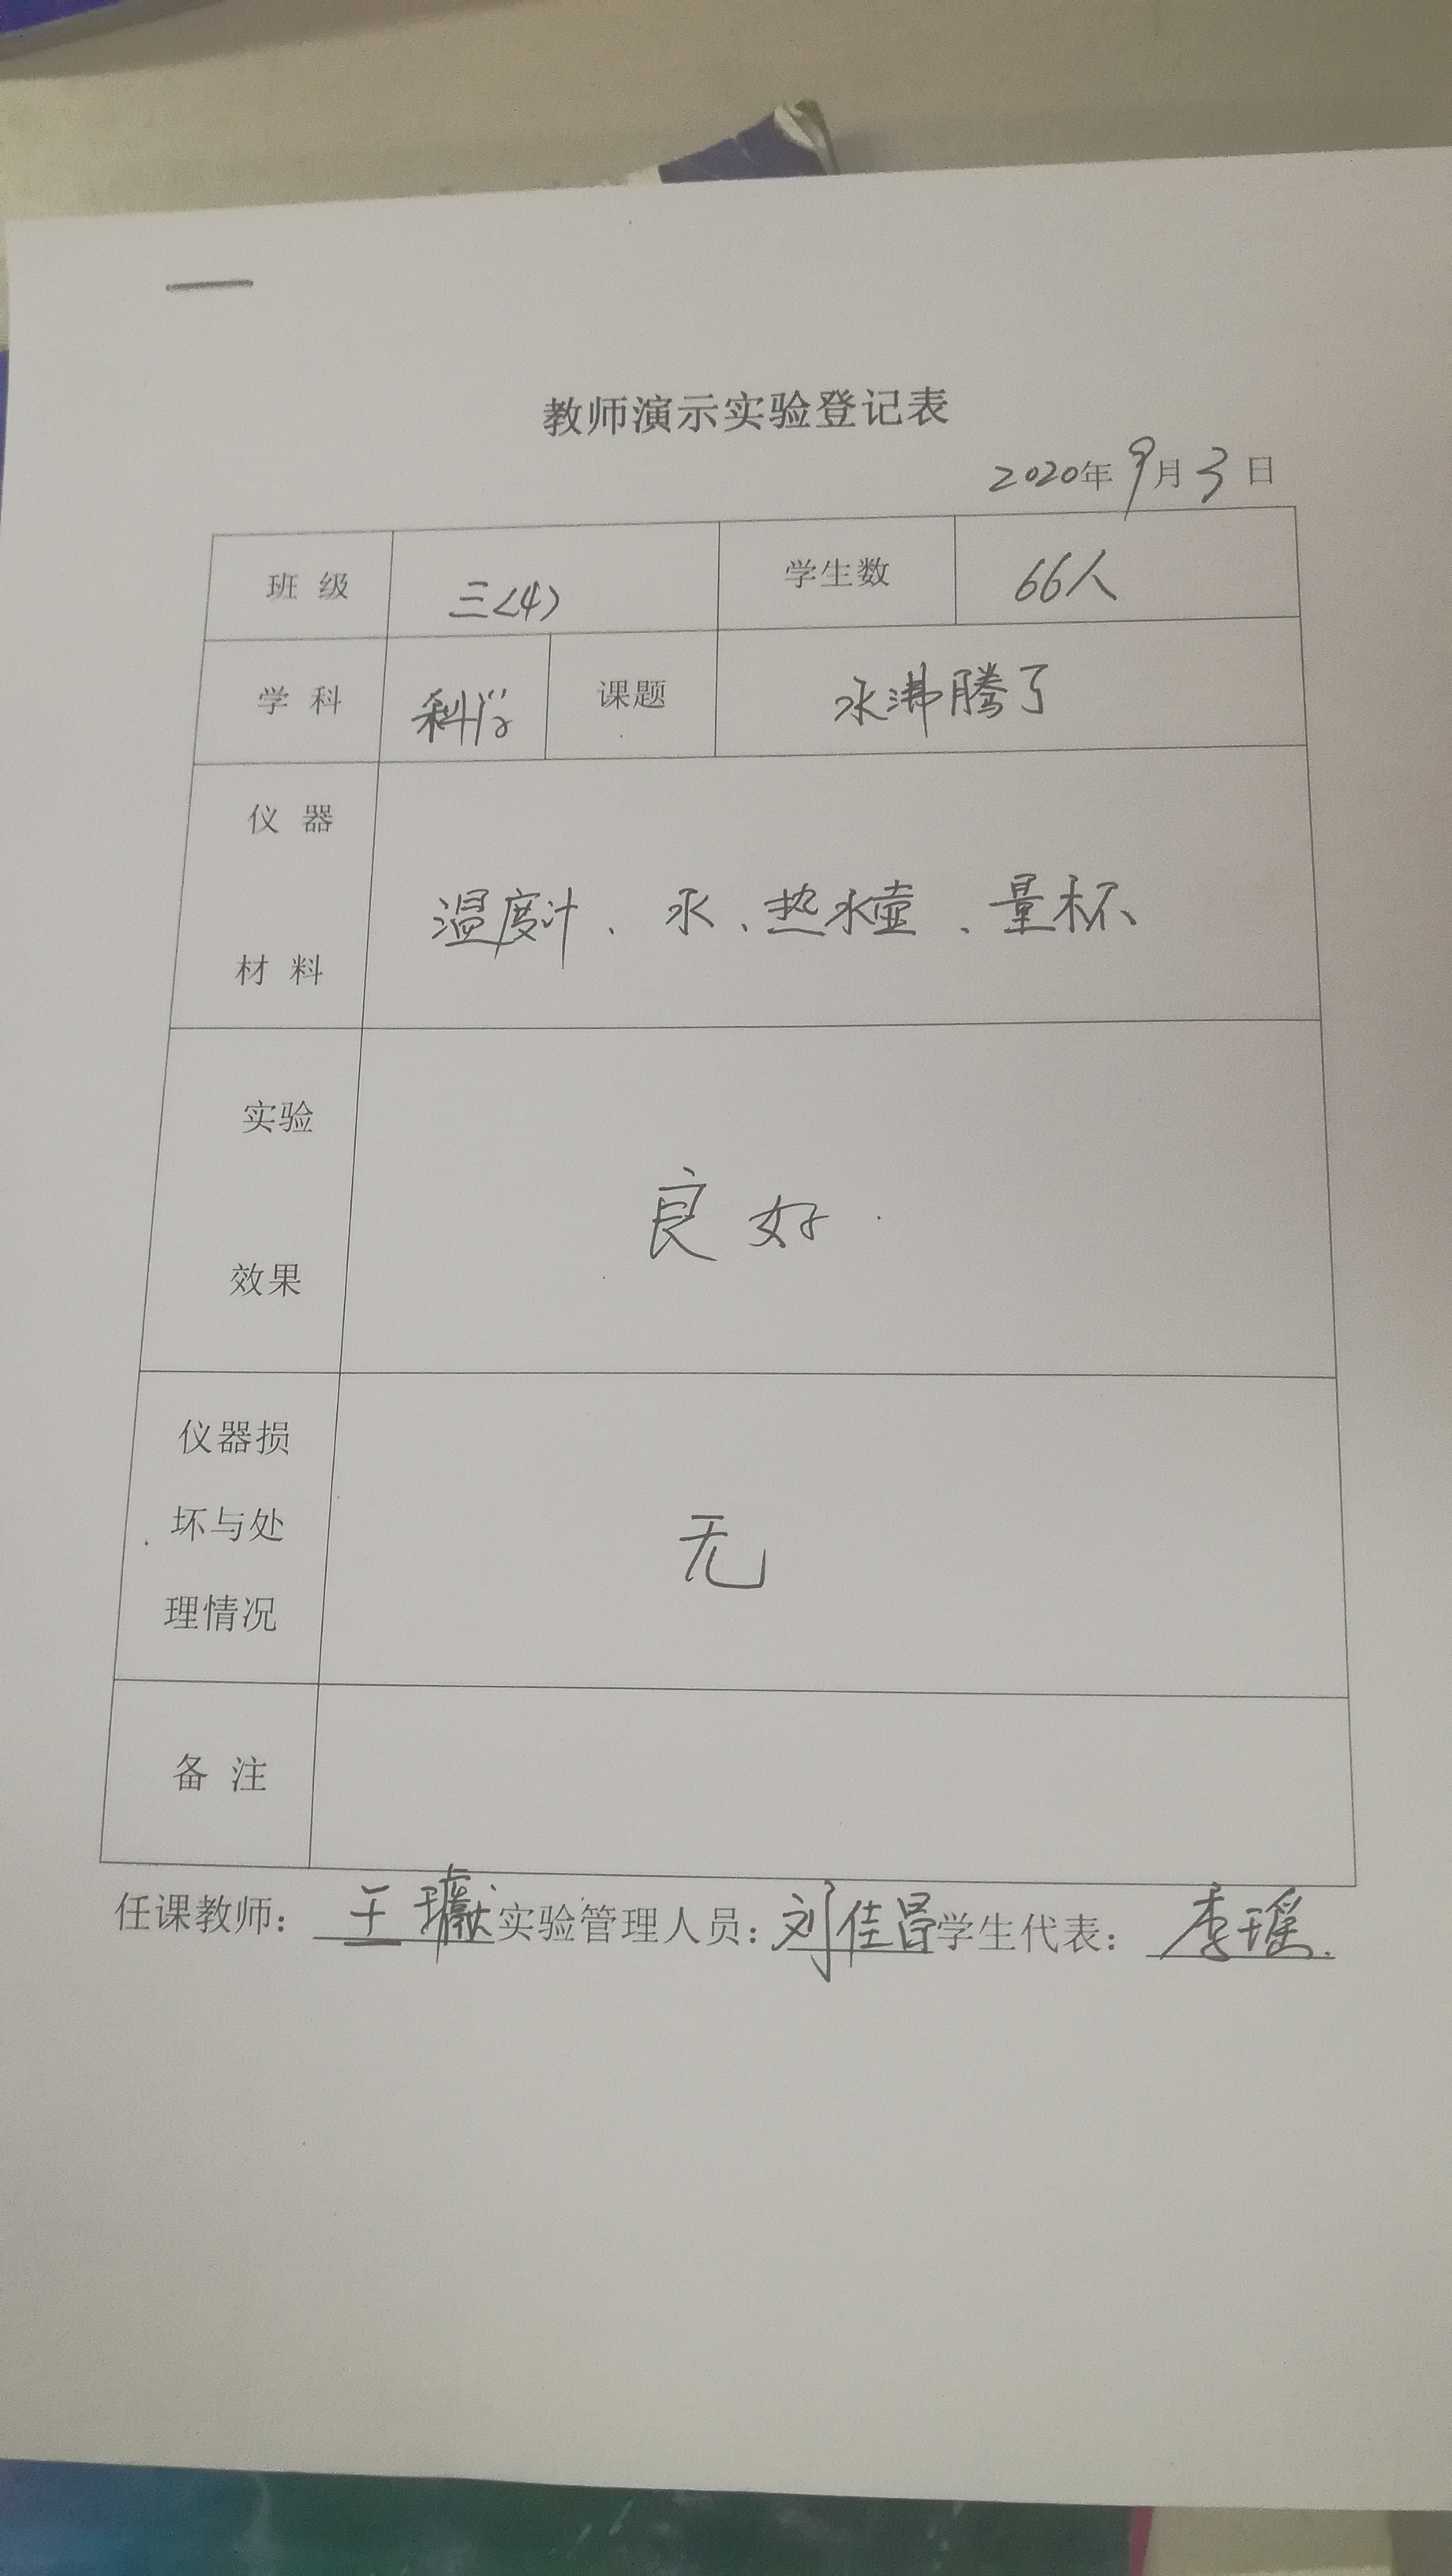 教师演示实验登记表
2020年9月3日
班 级 三(4) 学生数 66人
学 科 科学 课题 水沸腾了
仪 器
温度计、水、热水壶、量杯、
材 料
实验
良好.
效果
仪器损
坏与处
无
理情况
备 注
任课教师: 王 实验管理人员: 刘佳昌 学生代表: 李瑶.